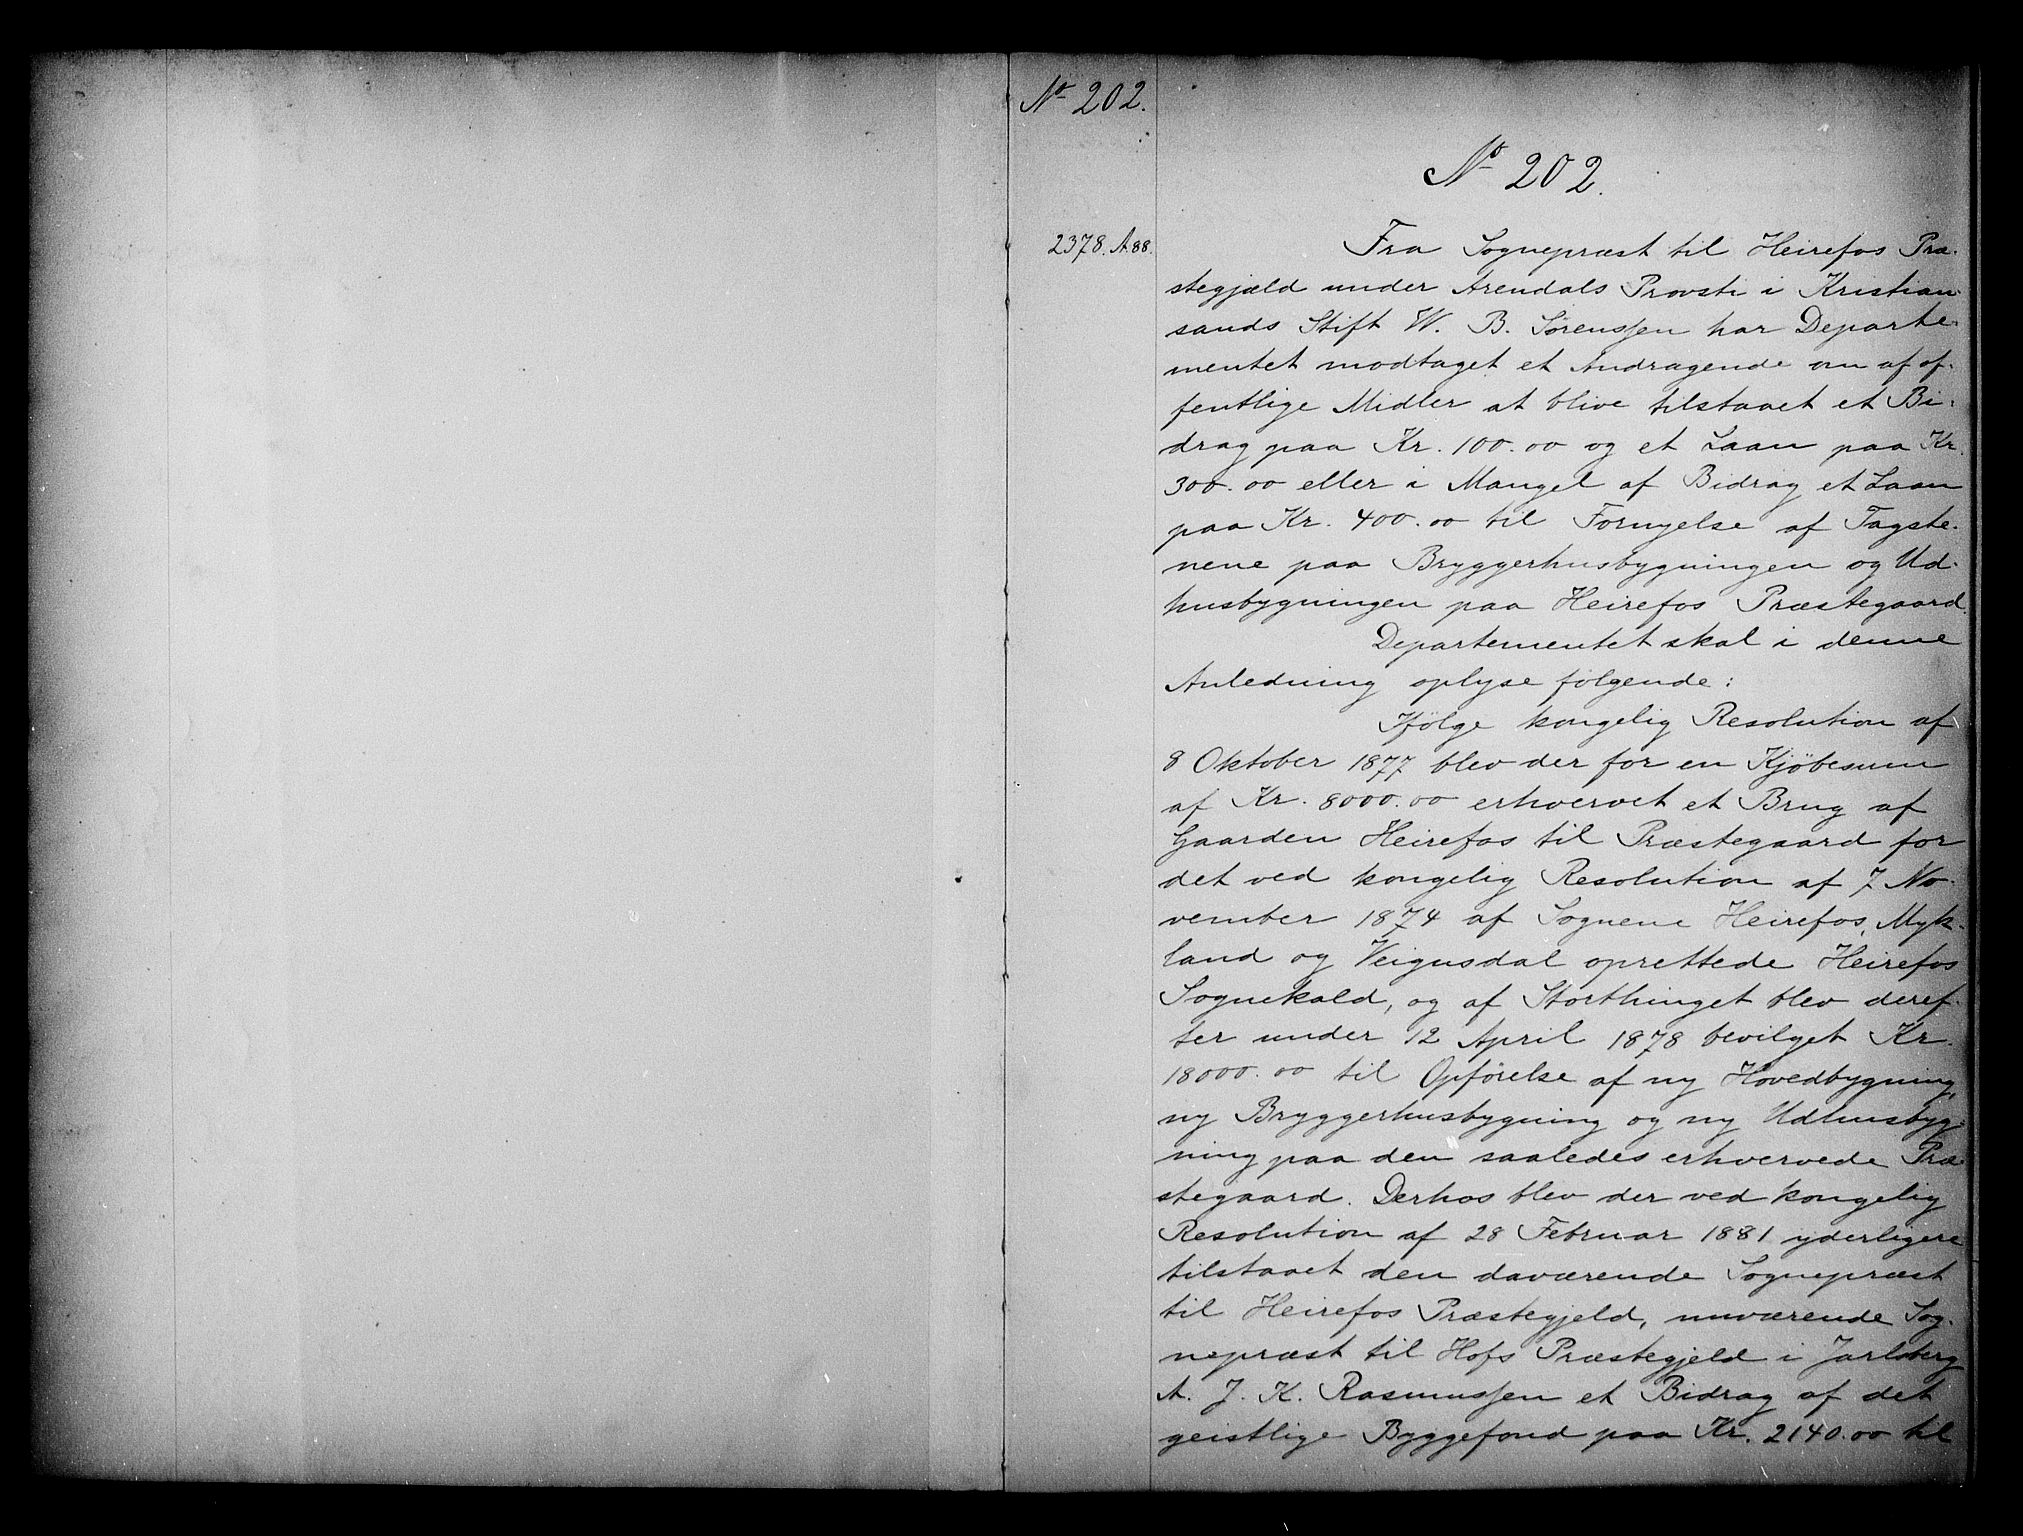 No 202.
No 202.
2378. A 88.
Fra Sognepræst til Heirefos Præ-
stegjæld under Arendals Provsti i Kristian-
sands Stift W. B. Sørenssen har Departe-
mentet modtaget et Andragende om af of-
fentlige Midler at blive tilstaaet et Bi-
drag paa Kr. 100.00 og et Laan paa Kr.
300.00 eller i Mangel af Bidrag et Laan
paa Kr. 400.00 til Fornyelse af Tagste-
nene paa Bryggerhusbygningen og Ud-
husbygningen paa Heirefos Præstegaard.
Departementet skal i denne
Anledning oplyse følgende:
Ifölge kongelig Resolution af
8 Oktober 1877 blev der for en Kjöbesum
af Kr. 8000.00 erhvervet et Brug af
Gaarden Heirefos til Præstegaard for
det ved kongelig Resolution af 7 No-
vember 1874 af Sognene Heirefos, Myk-
land og Veigusdal oprettede Heirefos
Sognekald, og af Storthinget blev deref-
ter under 12 April 1878 bevilget Kr.
18000.00 til Opförelse af ny Hovedbygning,
ny Bryggerhusbygning og ny Udhusbyg-
ning paa den saaledes erhvervede Præ-
stegaard. Derhos blev der ved kongelig
Resolution af 28 Februar 1881 yderligere
tilstaaet den daværende Sognepræst
til Heirefos Præstegjeld, nuværende Sog-
nepræst til Hofs Præstegjeld i Jarlsberg
A. J. K. Rasmussen et Bidrag af det
geistlige Byggefond paa Kr. 2140.00 til